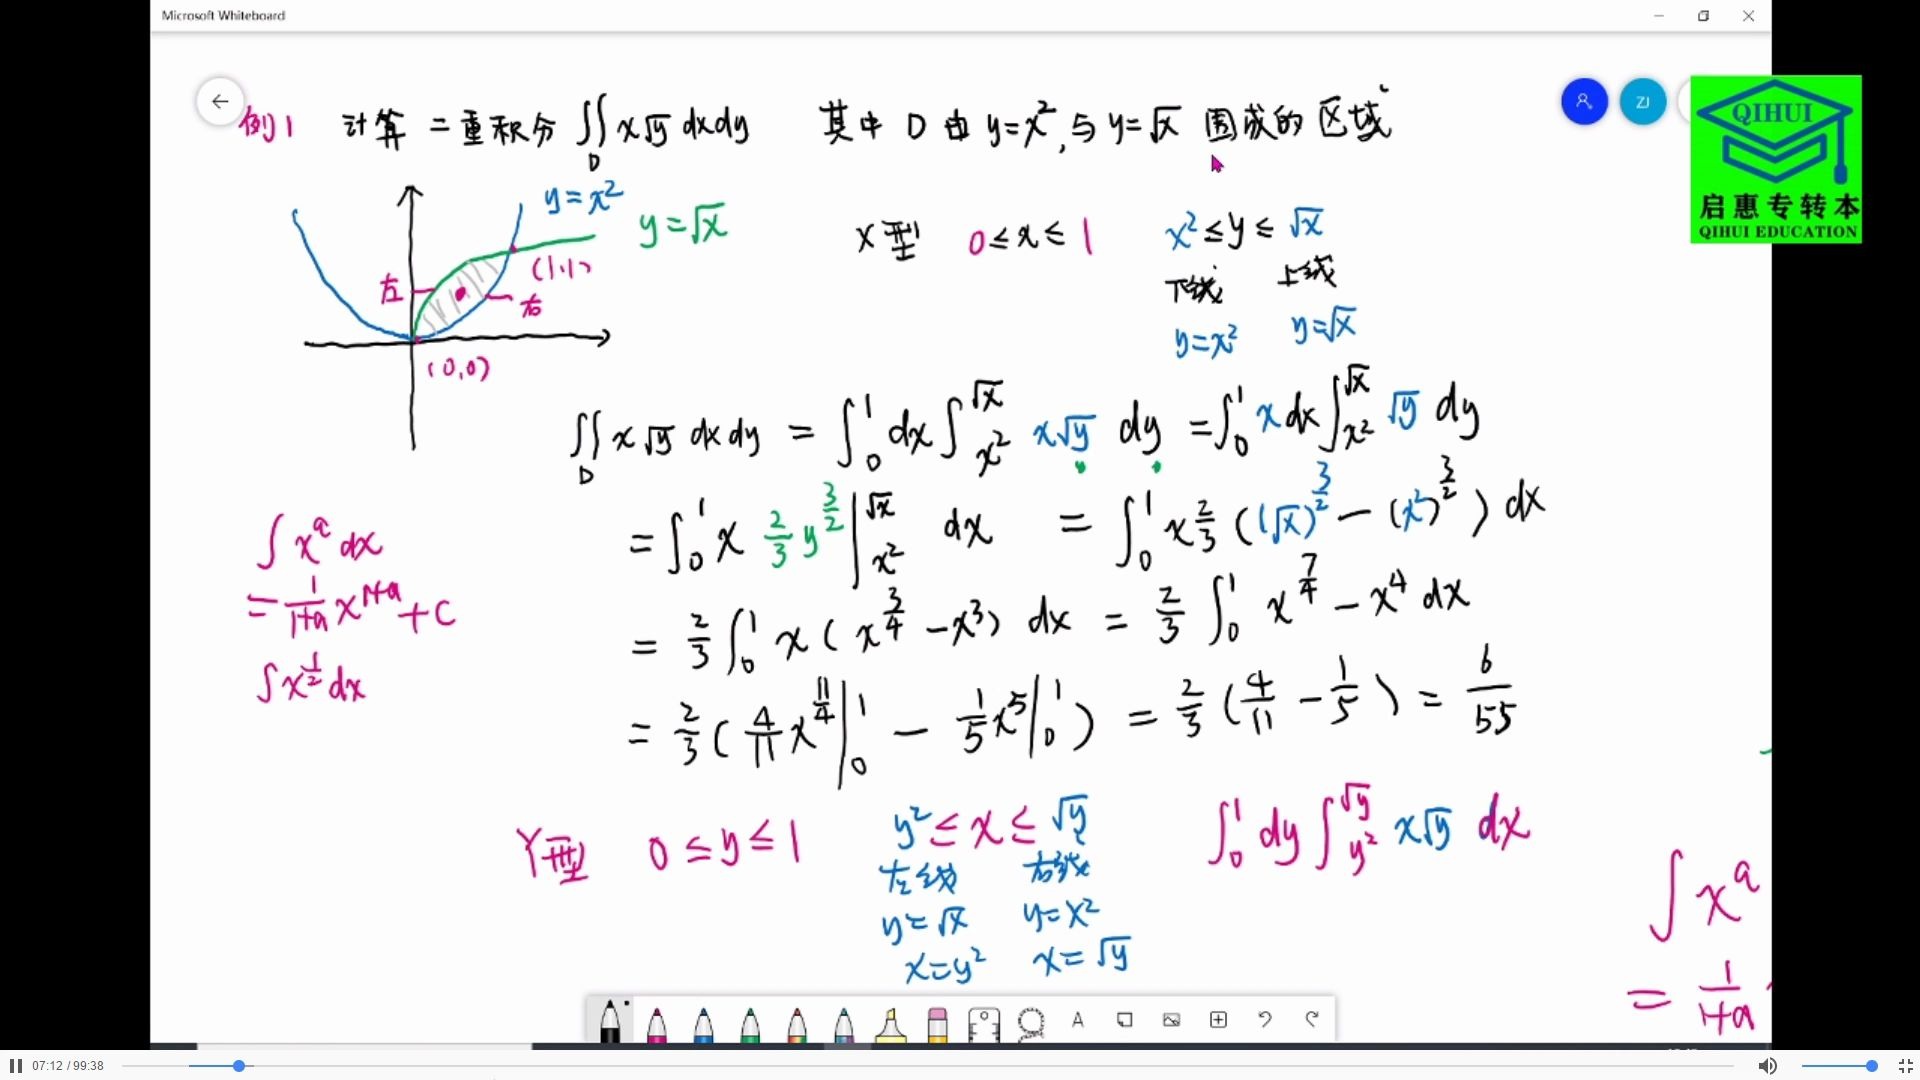 Microsoft Whiteboard
例1 计算二重积分 ∬_D x√y dxdy 其中 D 由 y=x², 与 y=√x 围成的区域
ZJ
QIHUI
启惠专转本
QIHUI EDUCATION
y=x²
y=√x
(1,1)
左
右
(0,0)
X型 0≤x≤1 x²≤y≤√x
下线 上线
y=x² y=√x
∬_D x√y dxdy = ∫_0^1 dx ∫_{x²}^{√x} x√y dy = ∫_0^1 x dx ∫_{x²}^{√x} √y dy
= ∫_0^1 x 2/3 y^{3/2} |_{x²}^{√x} dx = ∫_0^1 x 2/3 ((√x)^{3/2} − (x²)^{3/2}) dx
= 2/3 ∫_0^1 x (x^{3/4} − x³) dx = 2/3 ∫_0^1 x^{7/4} − x⁴ dx
= 2/3 (4/11 x^{11/4} |_0^1 − 1/5 x⁵ |_0^1) = 2/3 (4/11 − 1/5) = 6/55
∫ x^a dx
= 1/(1+a) x^{1+a} + C
∫ x^{1/2} dx
Y型 0≤y≤1 y²≤x≤√y ∫_0^1 dy ∫_{y²}^{√y} x√y dx
左线 右线
y=√x y=x²
x=y² x=√y
∫ x^a
= 1/(1+a)
A
07:12 / 99:38